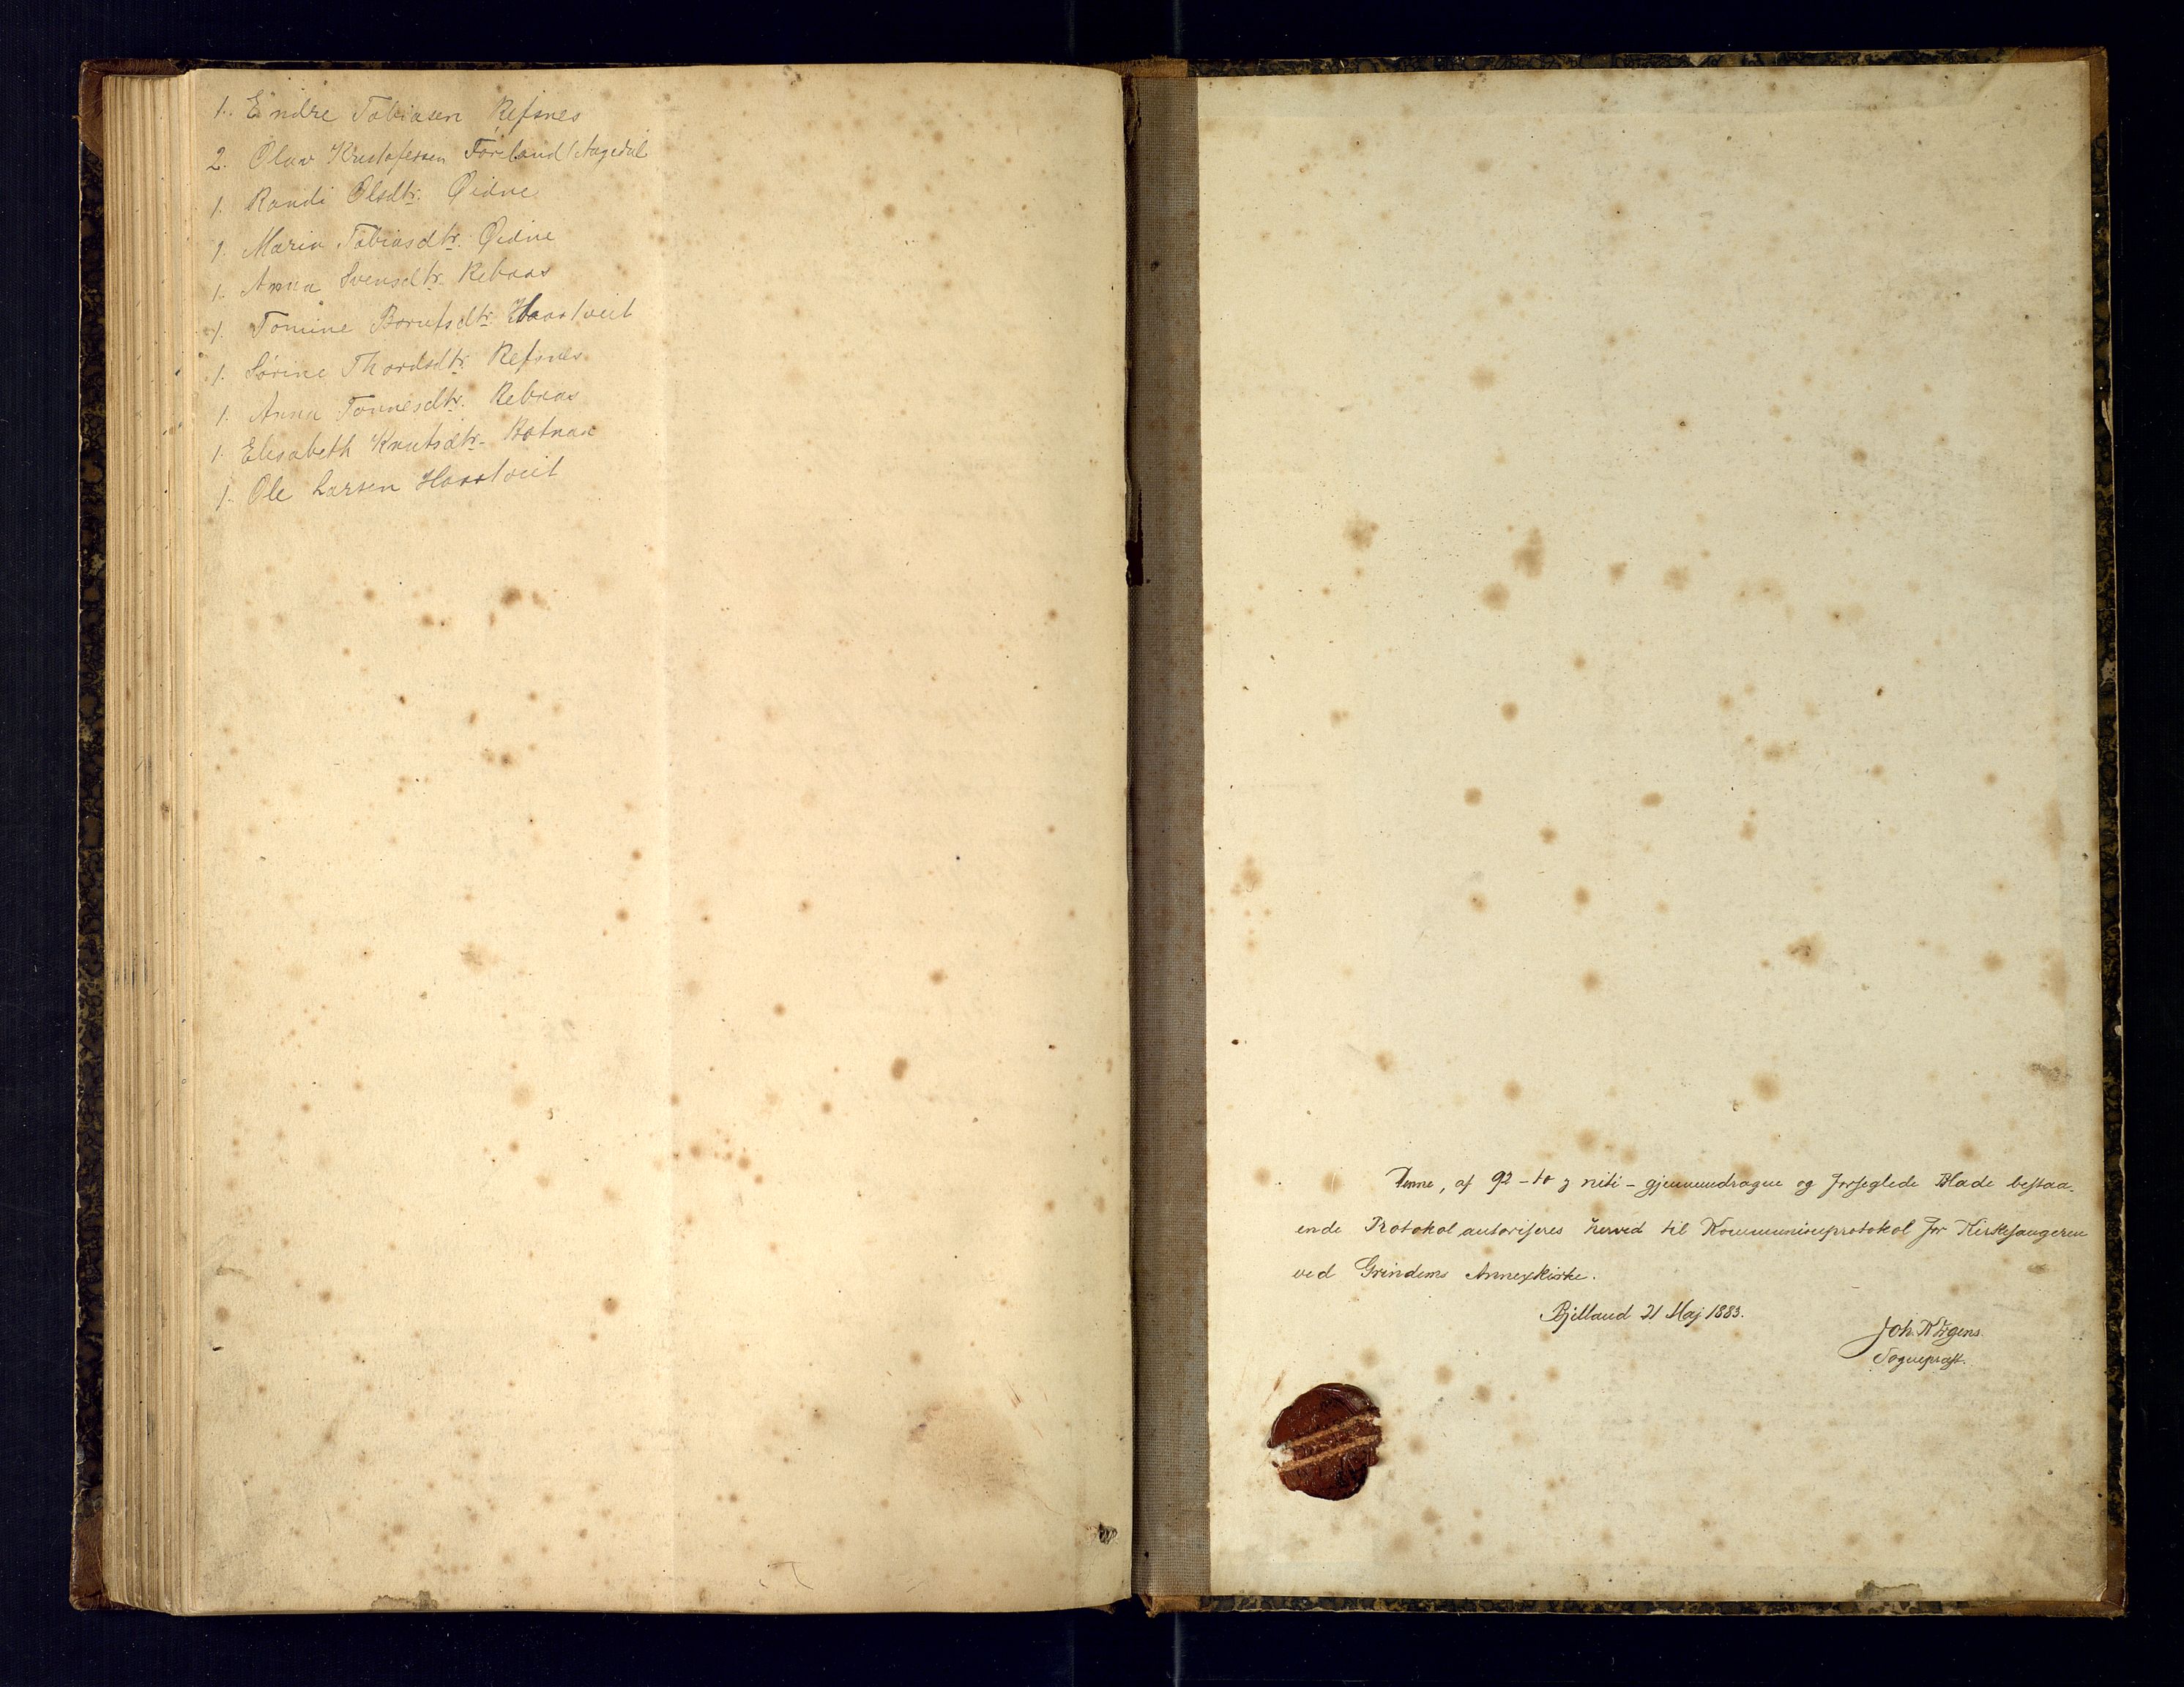 1. Endre Tobiasen Refsnes
2. Olav Kristofersen Føreland / Aagedal
1. Randi Olsdtr. Øidne
1. Maria Tobiasdtr. Øidne
1. Anna Svensdtr. Rebaas
1. Tomine Berntsdtr. Haartveit
1. Sørine Thordsdtr. Refsnes
1. Anna Tønnesdtr. Rebaas
1. Elisabeth Knutsdtr. Botnan
1. Ole Larsen Haartveit
Denne, af 92 - to og niti - gjennemdragne og forseglede Blade bestaa-
ende Protokol autoriseres herved til Kommunionprotokol for Kirkesangeren
ved Grindems Annexkirke.
Bjelland 21 Maj 1883.
Joh.
Sognepræst.